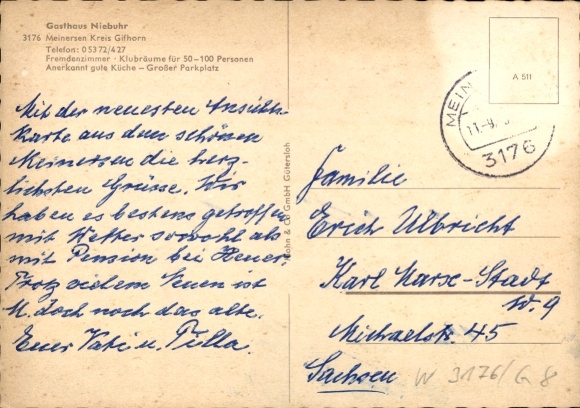 Gasthaus Niebuhr
3176 Meinersen Kreis Gifhorn
Telefon: 0 53 72/4 27
Fremdenzimmer · Klubräume für 50–100 Personen
Anerkannt gute Küche – Großer Parkplatz
Mit der neuesten Ansichts-
karte aus dem schönen
Meinersen die herz-
lichsten Grüsse. Wir
haben es bestens getroffen
mit Wetter sowohl als
mit Pension bei Heuer.
Trotz vielem Neuen ist
M. doch noch das alte.
Euer Vati u. Tulla.
& Co GmbH Gütersloh
A 511
MEIN
11.-9.
3176
Familie
Erich Ulbricht
Karl Marx-Stadt
W. 9
Michaelstr. 45
Sachsen
W 3176/G 8